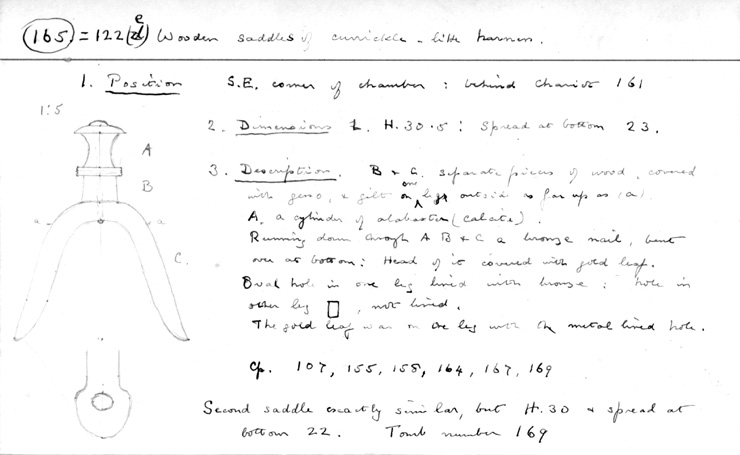 (165) = 122(e) Wooden saddles of curricle - like harness.
1. Position S.E. corner of chamber : behind chariot 161
1:5
2. Dimensions 1. H. 30.5 : Spread at bottom 23.
3. Description. B & C. separate pieces of wood, covered
with gesso, & gilt on one leg outside as far up as (a).
A. a cylinder of alabaster (calcite).
Running down through A B & C a bronze nail, bent
over at bottom: Head of it covered with gold leaf.
Oval hole in one leg lined with bronze : hole in
other leg ▯, not lined.
The gold leaf was on the leg with the metal lined hole.
Cp. 107, 155, 158, 164, 167, 169
Second saddle exactly similar, but H. 30 & spread at
bottom 22. Tomb number 169
A
B
a a
C.